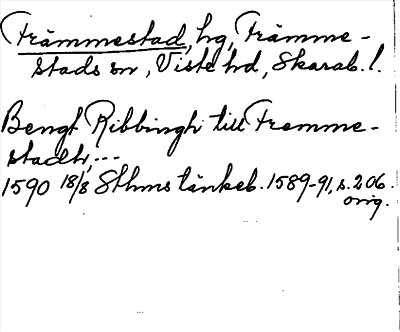 Främmestad, hg, Främme-
stads sn, Viste hd, Skarab. l.
Bengt Ribbingh till Fremme-
stadh, ---
1590 18/8 Sthms tänkeb. 1589-91, s. 206.
orig.